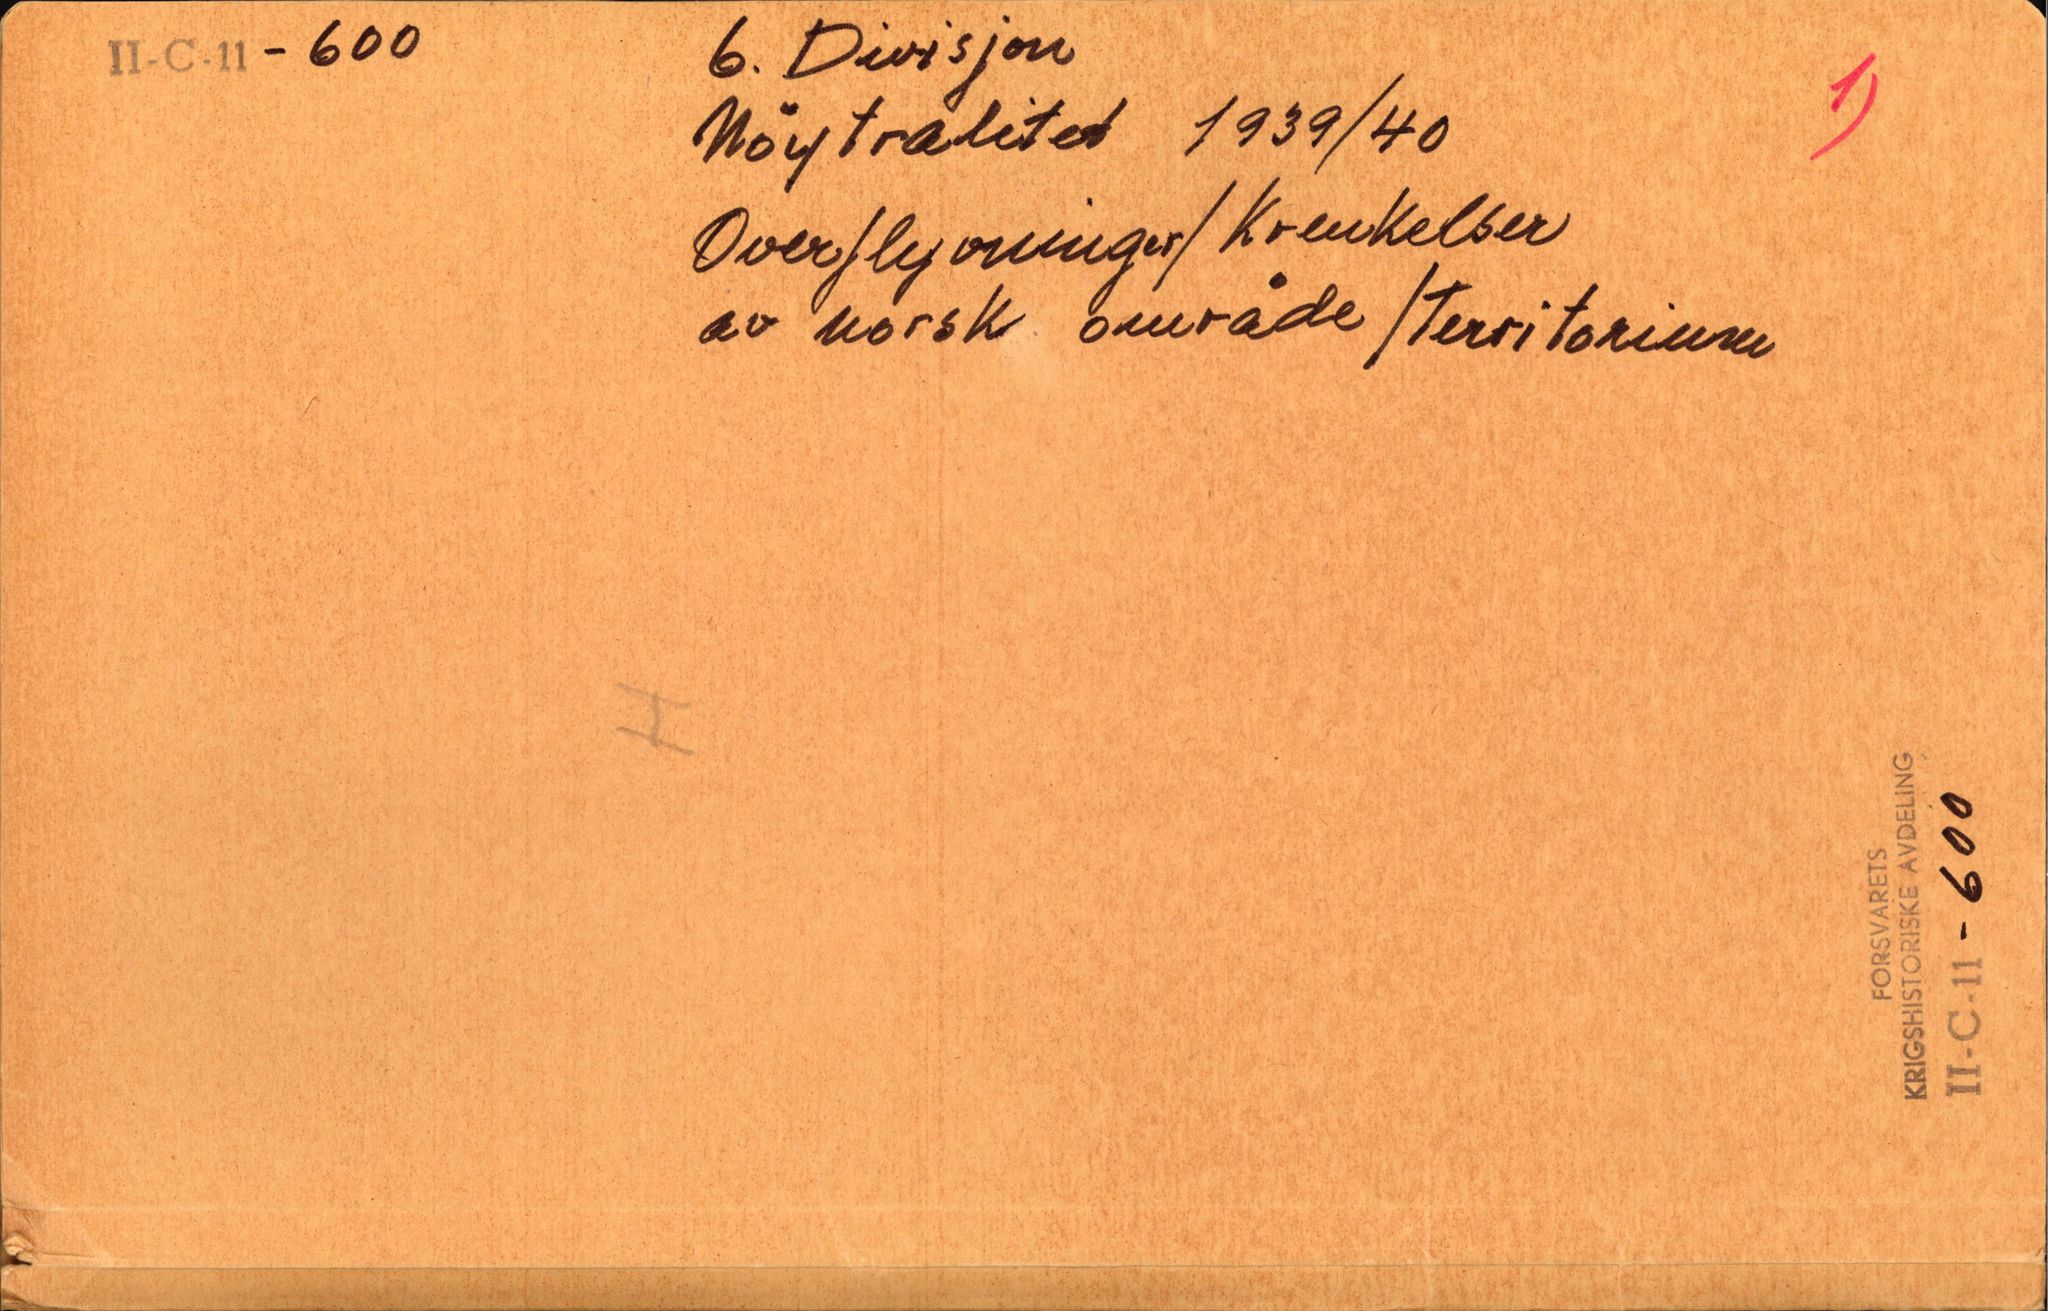 II-C-11 - 600
6. Divisjon
Nöytralitet 1939/40
Overflyvninger/Krenkelser
av norsk område/Territorium
1)
H
FORSVARETS
KRIGSHISTORISKE AVDELING
II-C-11 - 600